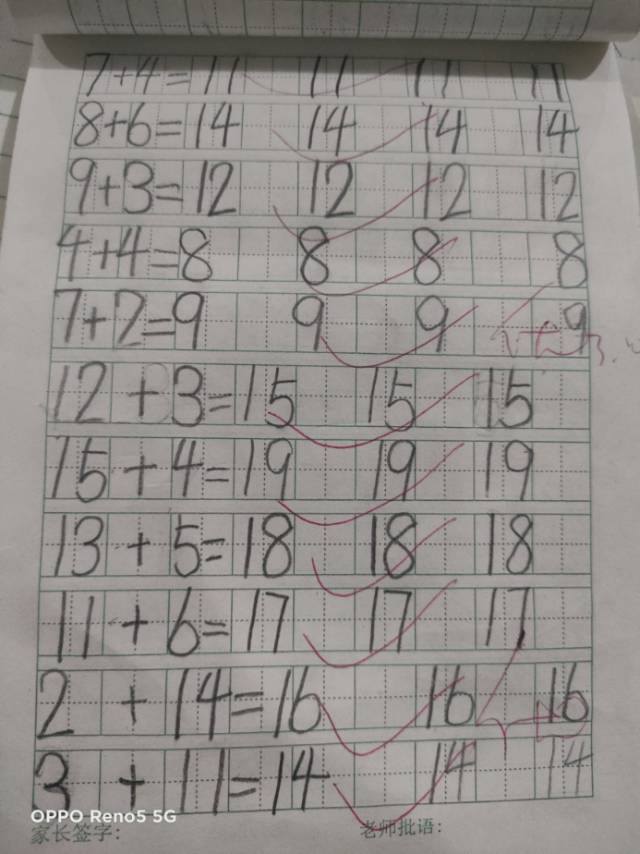 7+4=11 11 11 11
8+6=14 14 14 14
9+3=12 12 12 12
4+4=8 8 8 8
7+2=9 9 9 9
12+3=15 15 15
15+4=19 19 19
13+5=18 18 18
11+6=17 17 17
2+14=16 16 16
3+11=14 14 14
OPPO Reno5 5G
家长签字: 老师批语: